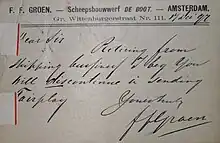 F. F. GROEN. — Scheepsbouwwerf DE BOOT. — AMSTERDAM.
Gr. Wittenburgerstraat Nr. 111. 17 Dec 97
Dear Sir
Retiring from
shipping business I beg you
will discontinue in sending
Fairplay
Yours truly
F F Groen